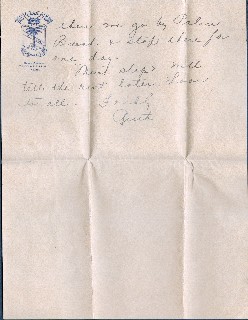 there we go by Palm
Beach & stop there for
one day.
Must stop will
tell the rest later. Love
to all.
Ruth